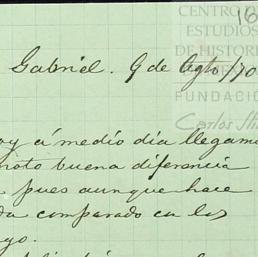 16
CENTRO DE
ESTUDIOS
DE HISTORI
FUNDACIÓ
Carlos Sli
Gabriel. 9 de Agto/70
oy á medio dia llegam
noto buena diferencia
pues aunque hace
da comparado con los
go.